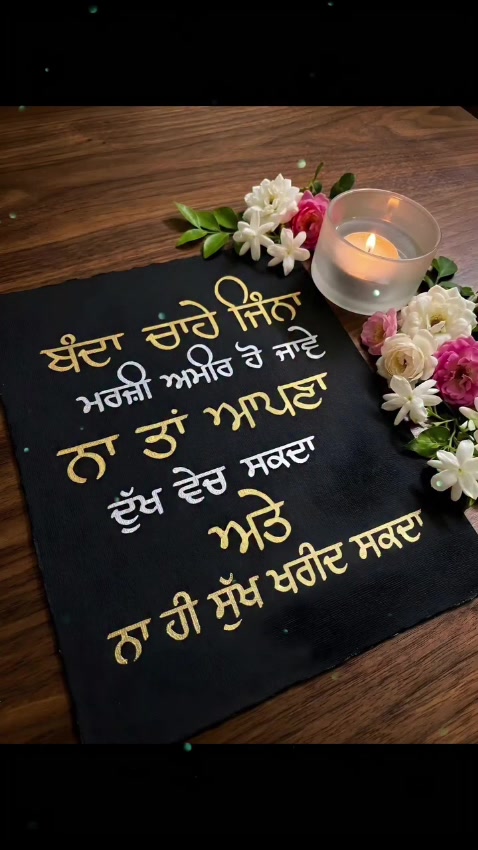 ਬੰਦਾ ਚਾਹੇ ਜਿੰਨਾ
ਮਰਜ਼ੀ ਅਮੀਰ ਹੋ ਜਾਵੇ
ਨਾ ਤਾਂ ਆਪਣਾ
ਦੁੱਖ ਵੇਚ ਸਕਦਾ
ਅਤੇ
ਨਾ ਹੀ ਸੁੱਖ ਖਰੀਦ ਸਕਦਾ